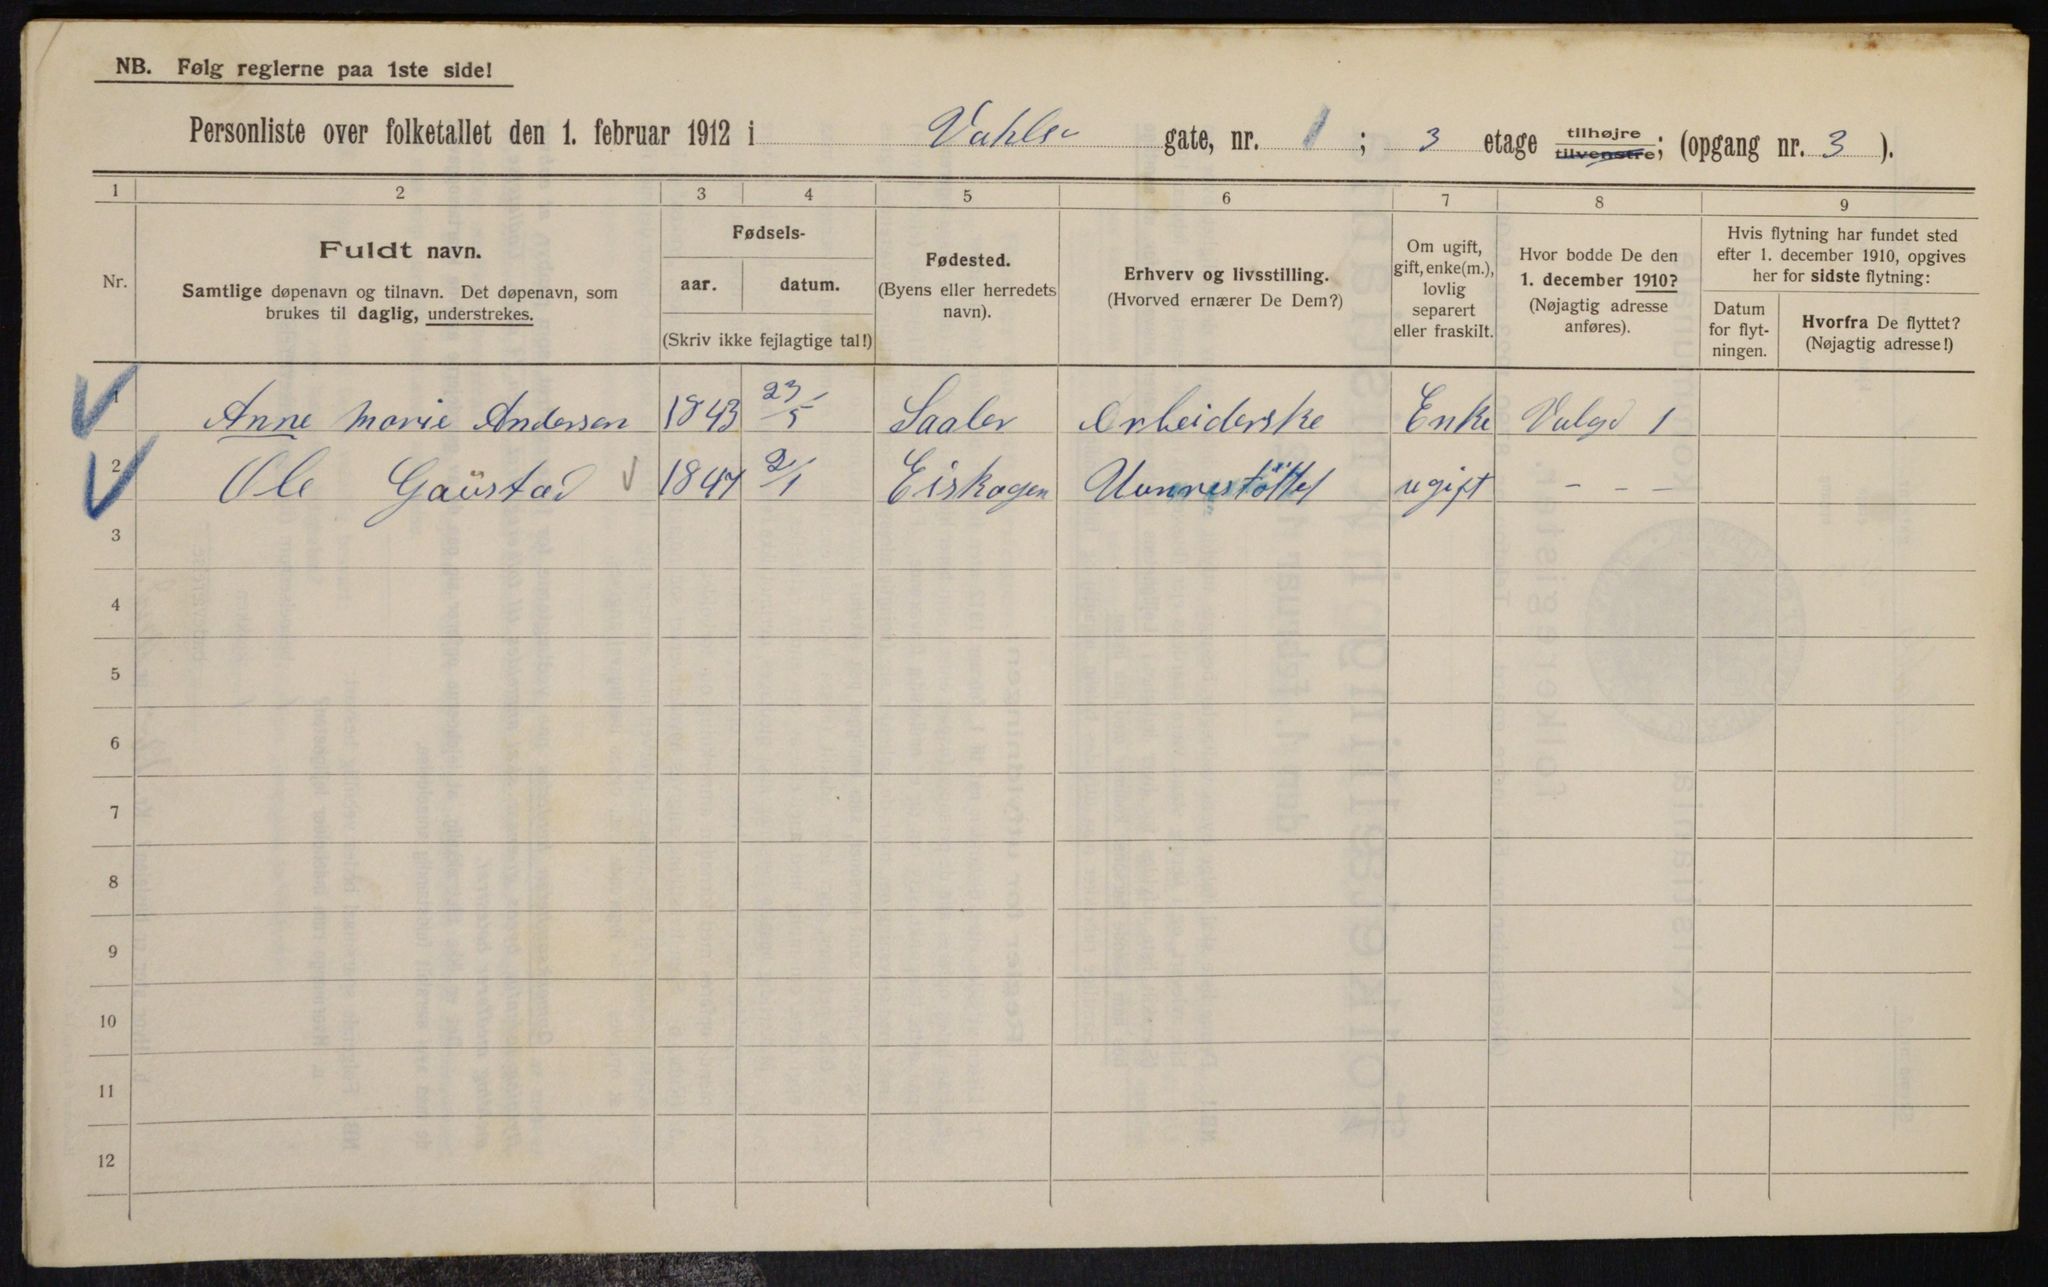 NB. Følg reglerne paa 1ste side!
Personliste over folketallet den 1. februar 1912 i Vahls gate, nr. 1 ; 3 etage tilhøjre tilvenstre; (opgang nr. 3 ).
1 2 3 4 5 6 7 8 9
Nr.
Fuldt navn.
Samtlige døpenavn og tilnavn. Det døpenavn, som
brukes til daglig, understrekes.
Fødsels-
aar. datum.
(Skriv ikke fejlagtige tal!)
Fødested.
(Byens eller herredets
navn).
Erhverv og livsstilling.
(Hvorved ernærer De Dem?)
Om ugift,
gift, enke(m.),
lovlig
separert
eller fraskilt.
Hvor bodde De den
1. december 1910?
(Nøjagtig adresse
anføres).
Hvis flytning har fundet sted
efter 1. december 1910, opgives
her for sidste flytning:
Datum
for flyt-
ningen.
Hvorfra De flyttet?
(Nøjagtig adresse!)
1 Anne Marie Andersen 1843 23/5 Saaler Arbeiderske Enke 1
2 Ole Gaustad 1847 2/1 Eiskogen ugift - - -
3
4
5
6
7
8
9
10
11
12